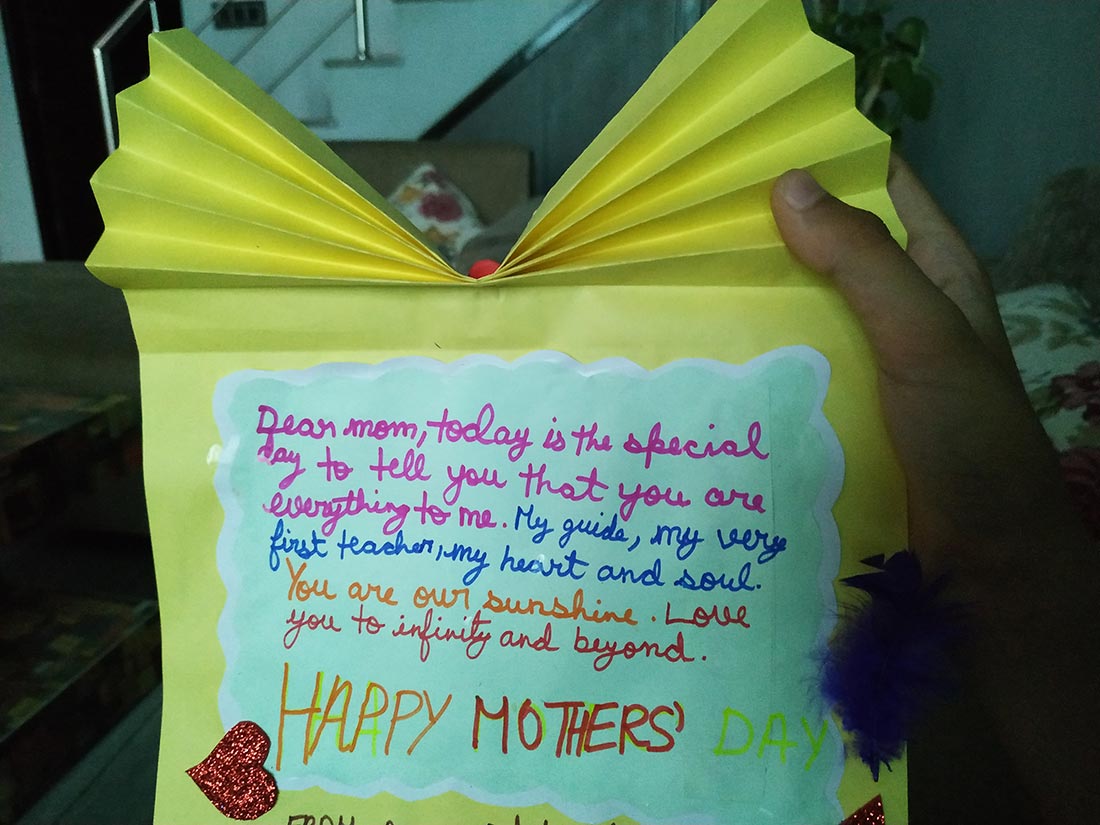 Dear mom, today is the special
day to tell you that you are
everything to me. My guide, my very
first teacher, my heart and soul.
You are our sunshine. Love
you to infinity and beyond.
HAPPY MOTHERS' DAY
FROM